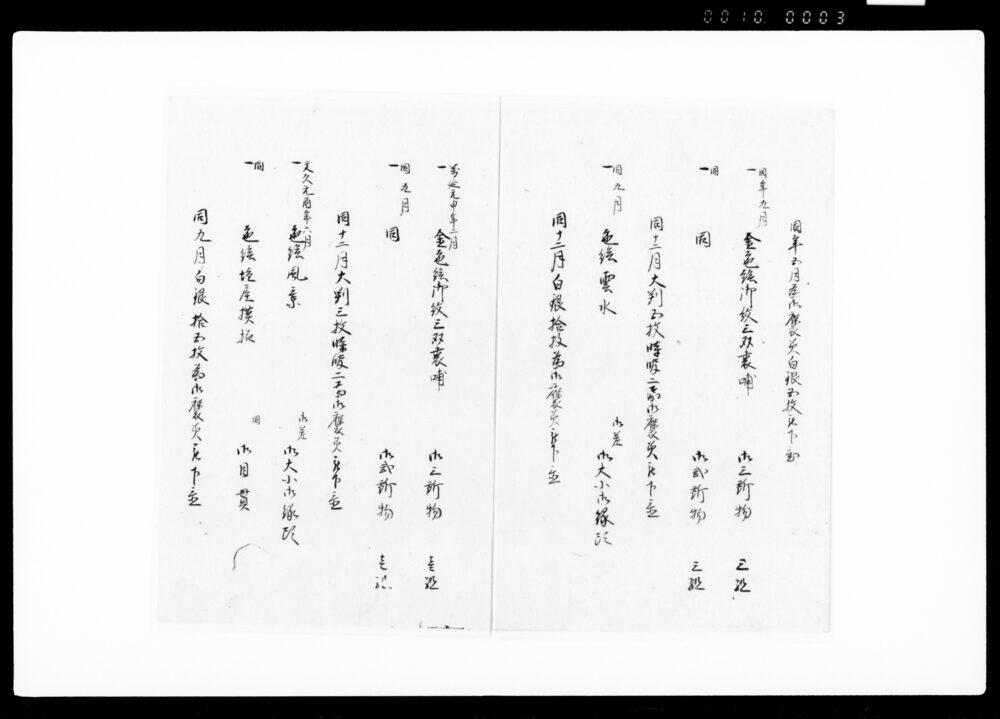 0010.0003
同年五月為御褒美白銀五枚被下置
一同年九月
金色絵御紋三双裏哺
御三所物 三組
一同
同
御弐所物 三組
同十二月大判五枚時服二為御褒美被下置
一同九月
色絵雲水
御差
御大小御縁頭
同十二月白銀拾枚為御褒美被下置
一萬延元申年二月
金色絵御紋三双裏哺
御三所物 壱組
一同九月
同
御弐所物 壱組
同十二月大判三枚時服二為御褒美被下置
一文久元酉年六月
色絵風景
御差
御大小御縁頭
一同
色絵塩屋模様
同
御目貫
同九月白銀拾五枚為御褒美被下置